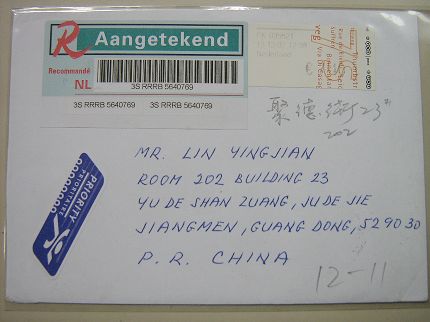 R Aangetekend
Recommandé
NL
3S RRRB 5640769
3S RRRB 5640769 3S RRRB 5640769
Nederland
聚德街23#
202
MR. LIN YINGJIAN
ROOM 202 BUILDING 23
YU DE SHAN ZUANG, JU DE JIE
JIANGMEN, GUANG DONG, 529030
P. R. CHINA
PRIORITY
PRIORITAIRE
12-11